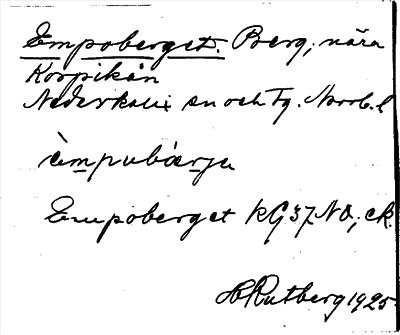 Empoberget. Berg; nära
Korpikån
Nederkalix sn och tg. Norrb. l
èmpubæ̀rju
Empoberget KG 37 NO; ek.
H Rutberg 1925.